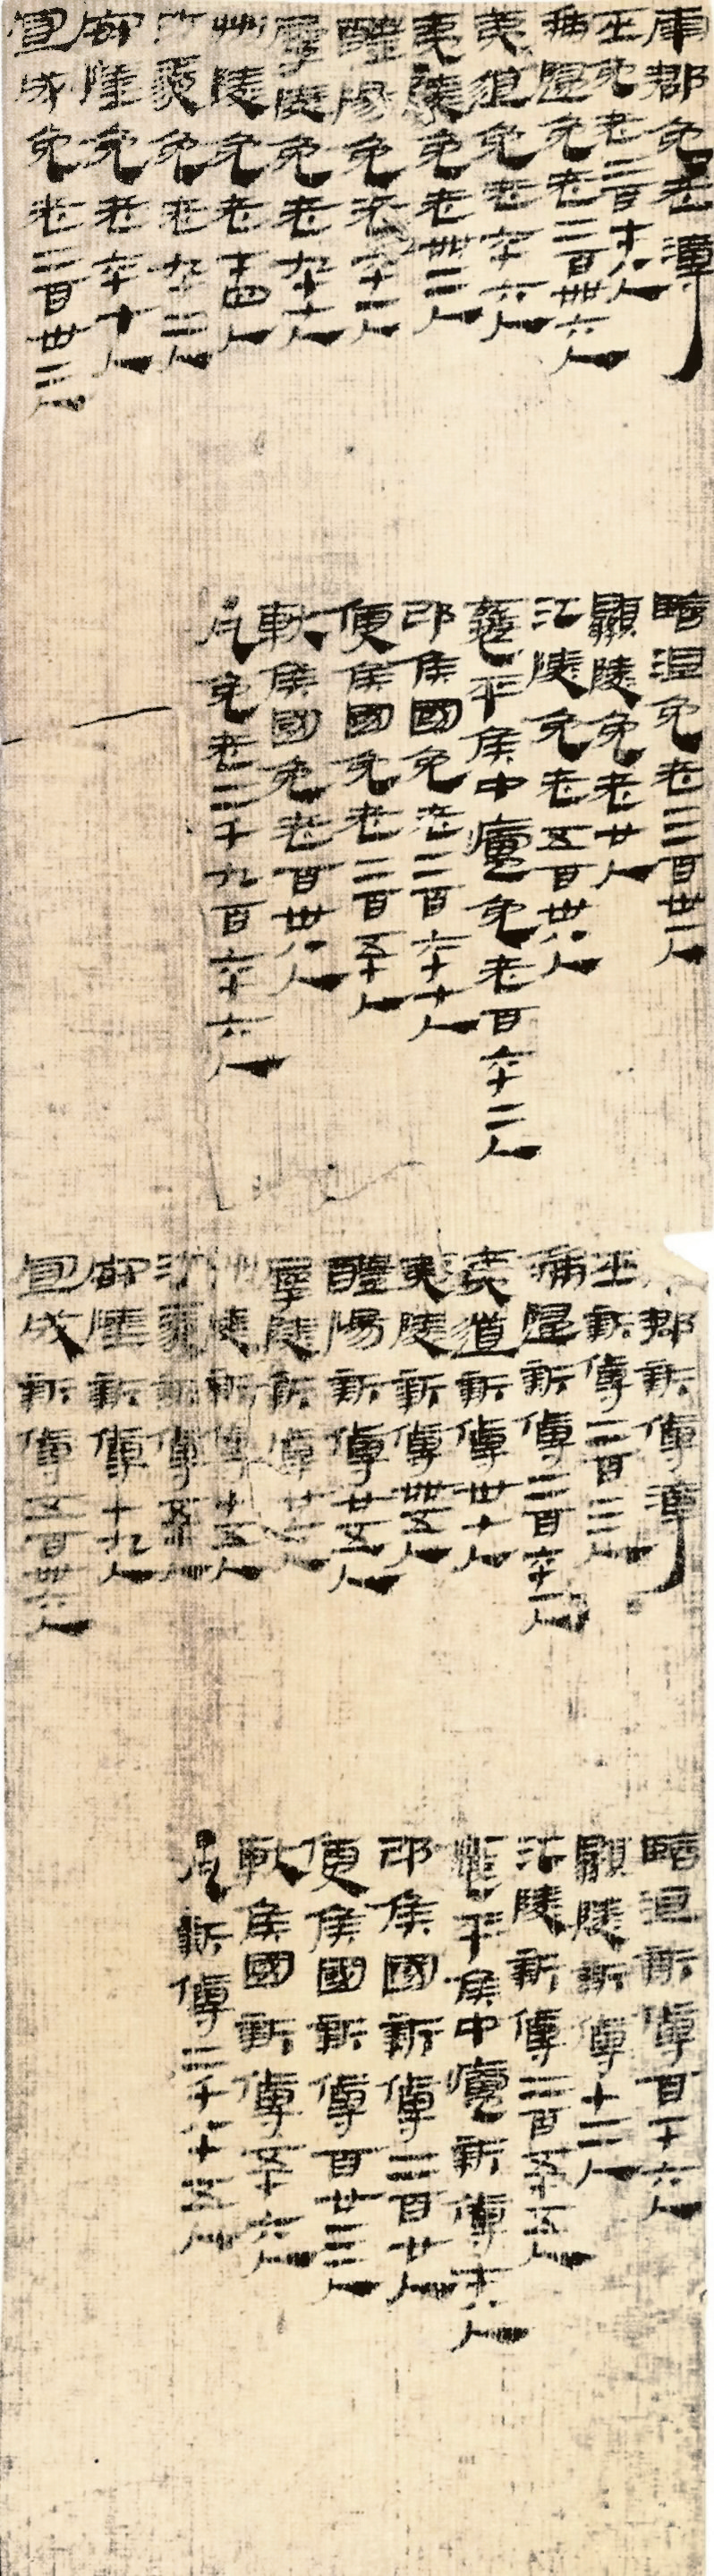 南郡免老簿
巫免老二百七十八人
秭歸免老二百卌六人
夷道免老六十六人
夷陵免老卌三人
醴陽免老六十一人
孱陵免老九十七人
州陵免老七十四人
沙羨免老九十二人
安陸免老六十七人
宜成免老二百卅二人
臨沮免老三百卅一人
顯陵免老廿人
江陵免老五百卅八人
襄平侯中廬免老百六十二人
邔侯國免老二百六十七人
便侯國免老二百五十人
軑侯國免老百卅八人
凡免老二千九百六十六人
郡新傅簿
巫新傅二百三人
秭歸新傅二百六十一人
夷道新傅卅七人
夷陵新傅卌五人
醴陽新傅廿五人
孱陵新傅廿六人
州陵新傅十五人
沙羨新傅五十人
安陸新傅十九人
宜成新傅五百卌六人
臨沮新傅百一十六人
顯陵新傅十二人
江陵新傅二百五十五人
襄平侯中廬新傅七十八人
邔侯國新傅二百廿人
便侯國新傅百廿三人
軑侯國新傅五十六人
凡新傅二千八十五人